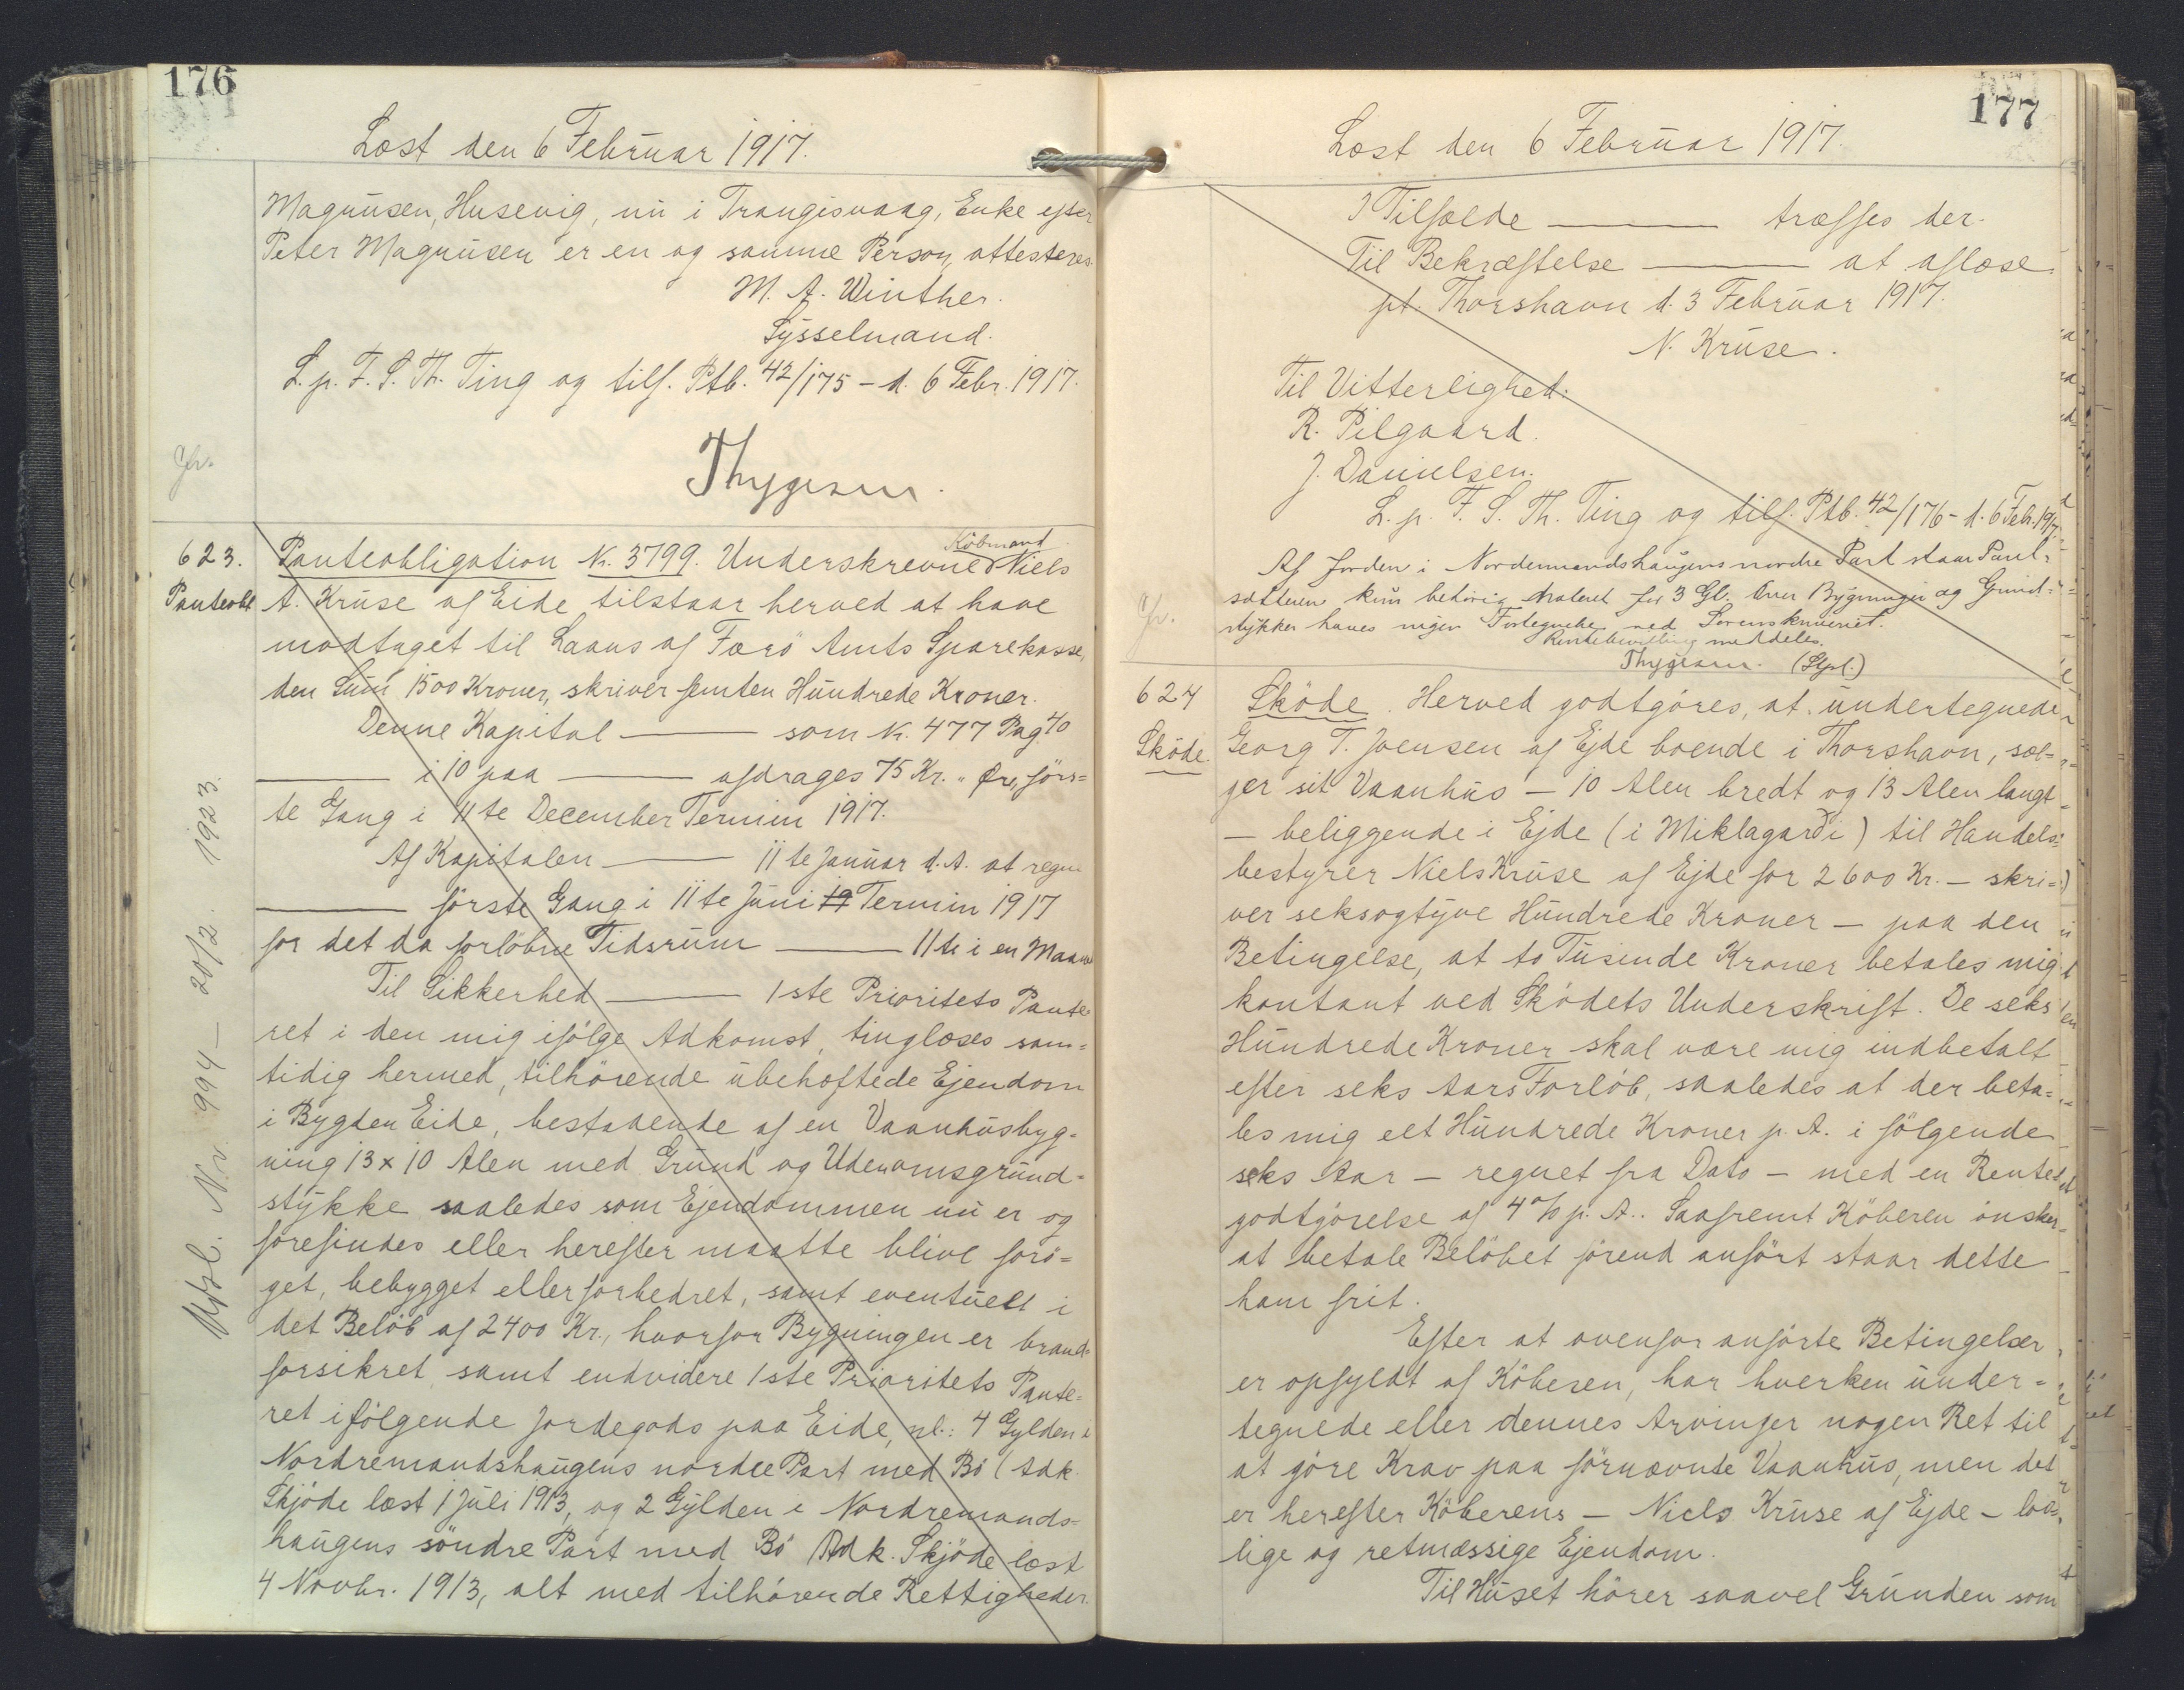 176
Læst den 6 Februar 1917.
Magnusen, Husevig, nu i Trangisvaag, Enke efter
Peter Magnusen er en og samme Person, attesteres.
M. A. Winther.
Sysselmand.
L. p. F. S. Th. Ting og tilf. Ptb. 42/175 - d. 6 Febr. 1917.
Thygesen.
623.
Panteobl
Köbmand
Panteobligation Nr. 3799. Underskrevne Niels
A. Kruse af Eide tilstaar herved at have
modtaget til Laans af Færö Amts Sparekasse,
den Sum 1500 Kroner, skriver femten Hundrede Kroner.
Denne Kapital ——— som Nr. 477 Pag. 40
——— i 10 paa ——— afdrages 75 Kr. " Øre, förs=
te Gang i 11te December Termin 1917.
Af Kapitalen ——— 11te Januar d. A. at regne
——— förste Gang i 11te Juni 19 Termin 1917
for det da forlöbne Tidsrum ——— 11te i en Maaned
Til Sikkerhed ——— 1ste Prioritets Pante=
ret i den mig ifölge Adkomst, tinglæses sam=
tidig hermed, tilhörende übehæftede Ejendom
i Bygden Eide, bestaaende af en Vaanhusbyg=
ning 13 x 10 Alen med Grund og Udenomsgrund=
stykke saaledes som Ejendommen nu er og
forefindes eller herefter maatte blive forö=
get, bebygget eller forbedret, samt eventuelt i
det Belöb af 2400 Kr., hvorfor Bygningen er brand=
forsikret samt endvidere 1ste Prioritets Pante=
ret i fölgende Jordegods paa Eide, nl.: 4 Gylden i
Nordremandshaugens nordre Part med Bö (Adk.
Skjöde læst 1 Juli 1913, og 2 Gylden i Nordremands=
haugens söndre Part med Bö Adk. Skjöde læst
4 Novbr. 1913, alt med tilhörende Rettigheder.
Nr. 994 - 20/2 1923.
177
Læst den 6 Februar 1917.
I Tilfælde ——— træffes der.
Til Bekræftelse ——— at aflæse.
pt. Thorshavn d. 3 Februar 1917.
N. Kruse.
Til Vitterlighed:
R. Pilgaard.
J. Danielsen.
L. p. F. S. Th. Ting og tilf. Ptb. 42/176 - d. 6 Feb. 1917.
Af Jorden i Nordremandshaugens nordre Part staar Pant=
sætteren kun behörig noteret for 3 Gl. Over Bygninger og Grund=
stykker haves ingen Fortegnelse ved Sorenskriveriet.
meddeles.
Thygesen. (Stpl.)
624
Sköde.
Sköde. Herved godtgöres, at undertegnede
Georg T. Joensen af Ejde boende i Thorshavn, sæl=
ger sit Vaanhus - 10 Alen bredt og 13 Alen langt
- beliggende i Ejde (i Miklagarði) til Handels=
bestyrer Niels Kruse af Ejde for 2600 Kr. - skri=
ver seksogtyve Hundrede Kroner - paa den
Betingelse, at to Tusinde Kroner betales mig
kontant ved Sködets Underskrift. De seks
Hundrede Kroner skal være mig indbetalt
efter seks Aars Forlöb, saaledes at der beta=
les mig eet Hundrede Kroner p. A. i fölgende
seks Aar - regnet fra Dato - med en Rente
godtgörelse af 4 % p. A.. Saafremt Köberen önsker
at betale Belöbet förend anfört staar dette
ham frit.
Efter at ovenfor anförte Betingelser
er opfyldt af Köberen, har hverken under=
tegnede eller dennes Arvinger nogen Ret til
at göre Krav paa förnævnte Vaanhus, men det
er herefter Köberens - Niels Kruse af Ejde - lov=
lige og retmæssige Ejendom.
Til Huset hörer saavel Grunden som